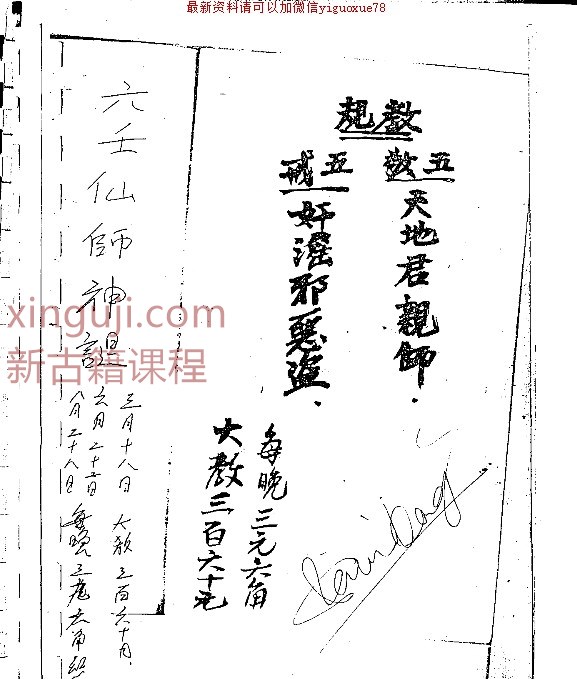 最新资料请可以加微信yiguoxue78
教規
五敬
天地君親師.
五戒
奸淫邪惡盜.
每晚三元六角
大教三百六十元
六壬仙師神誕
三月十八日
六月二十五日
八月二十八日
大教三百六十
每晚三元六角
xinguji.com
新古籍课程